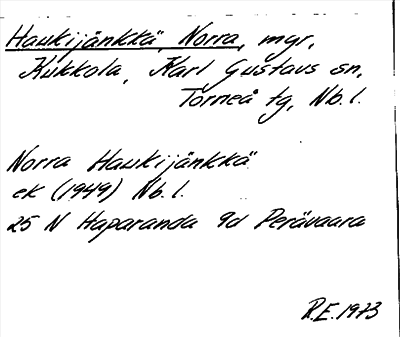 Haukijänkkä, Norra, myr,
Kukkola, Karl Gustavs sn,
Torneå tg, Nb. l.
Norra Haukijänkkä
ek (1949) Nb. l.
25 N Haparanda 9d Perävaara
R.E. 1973